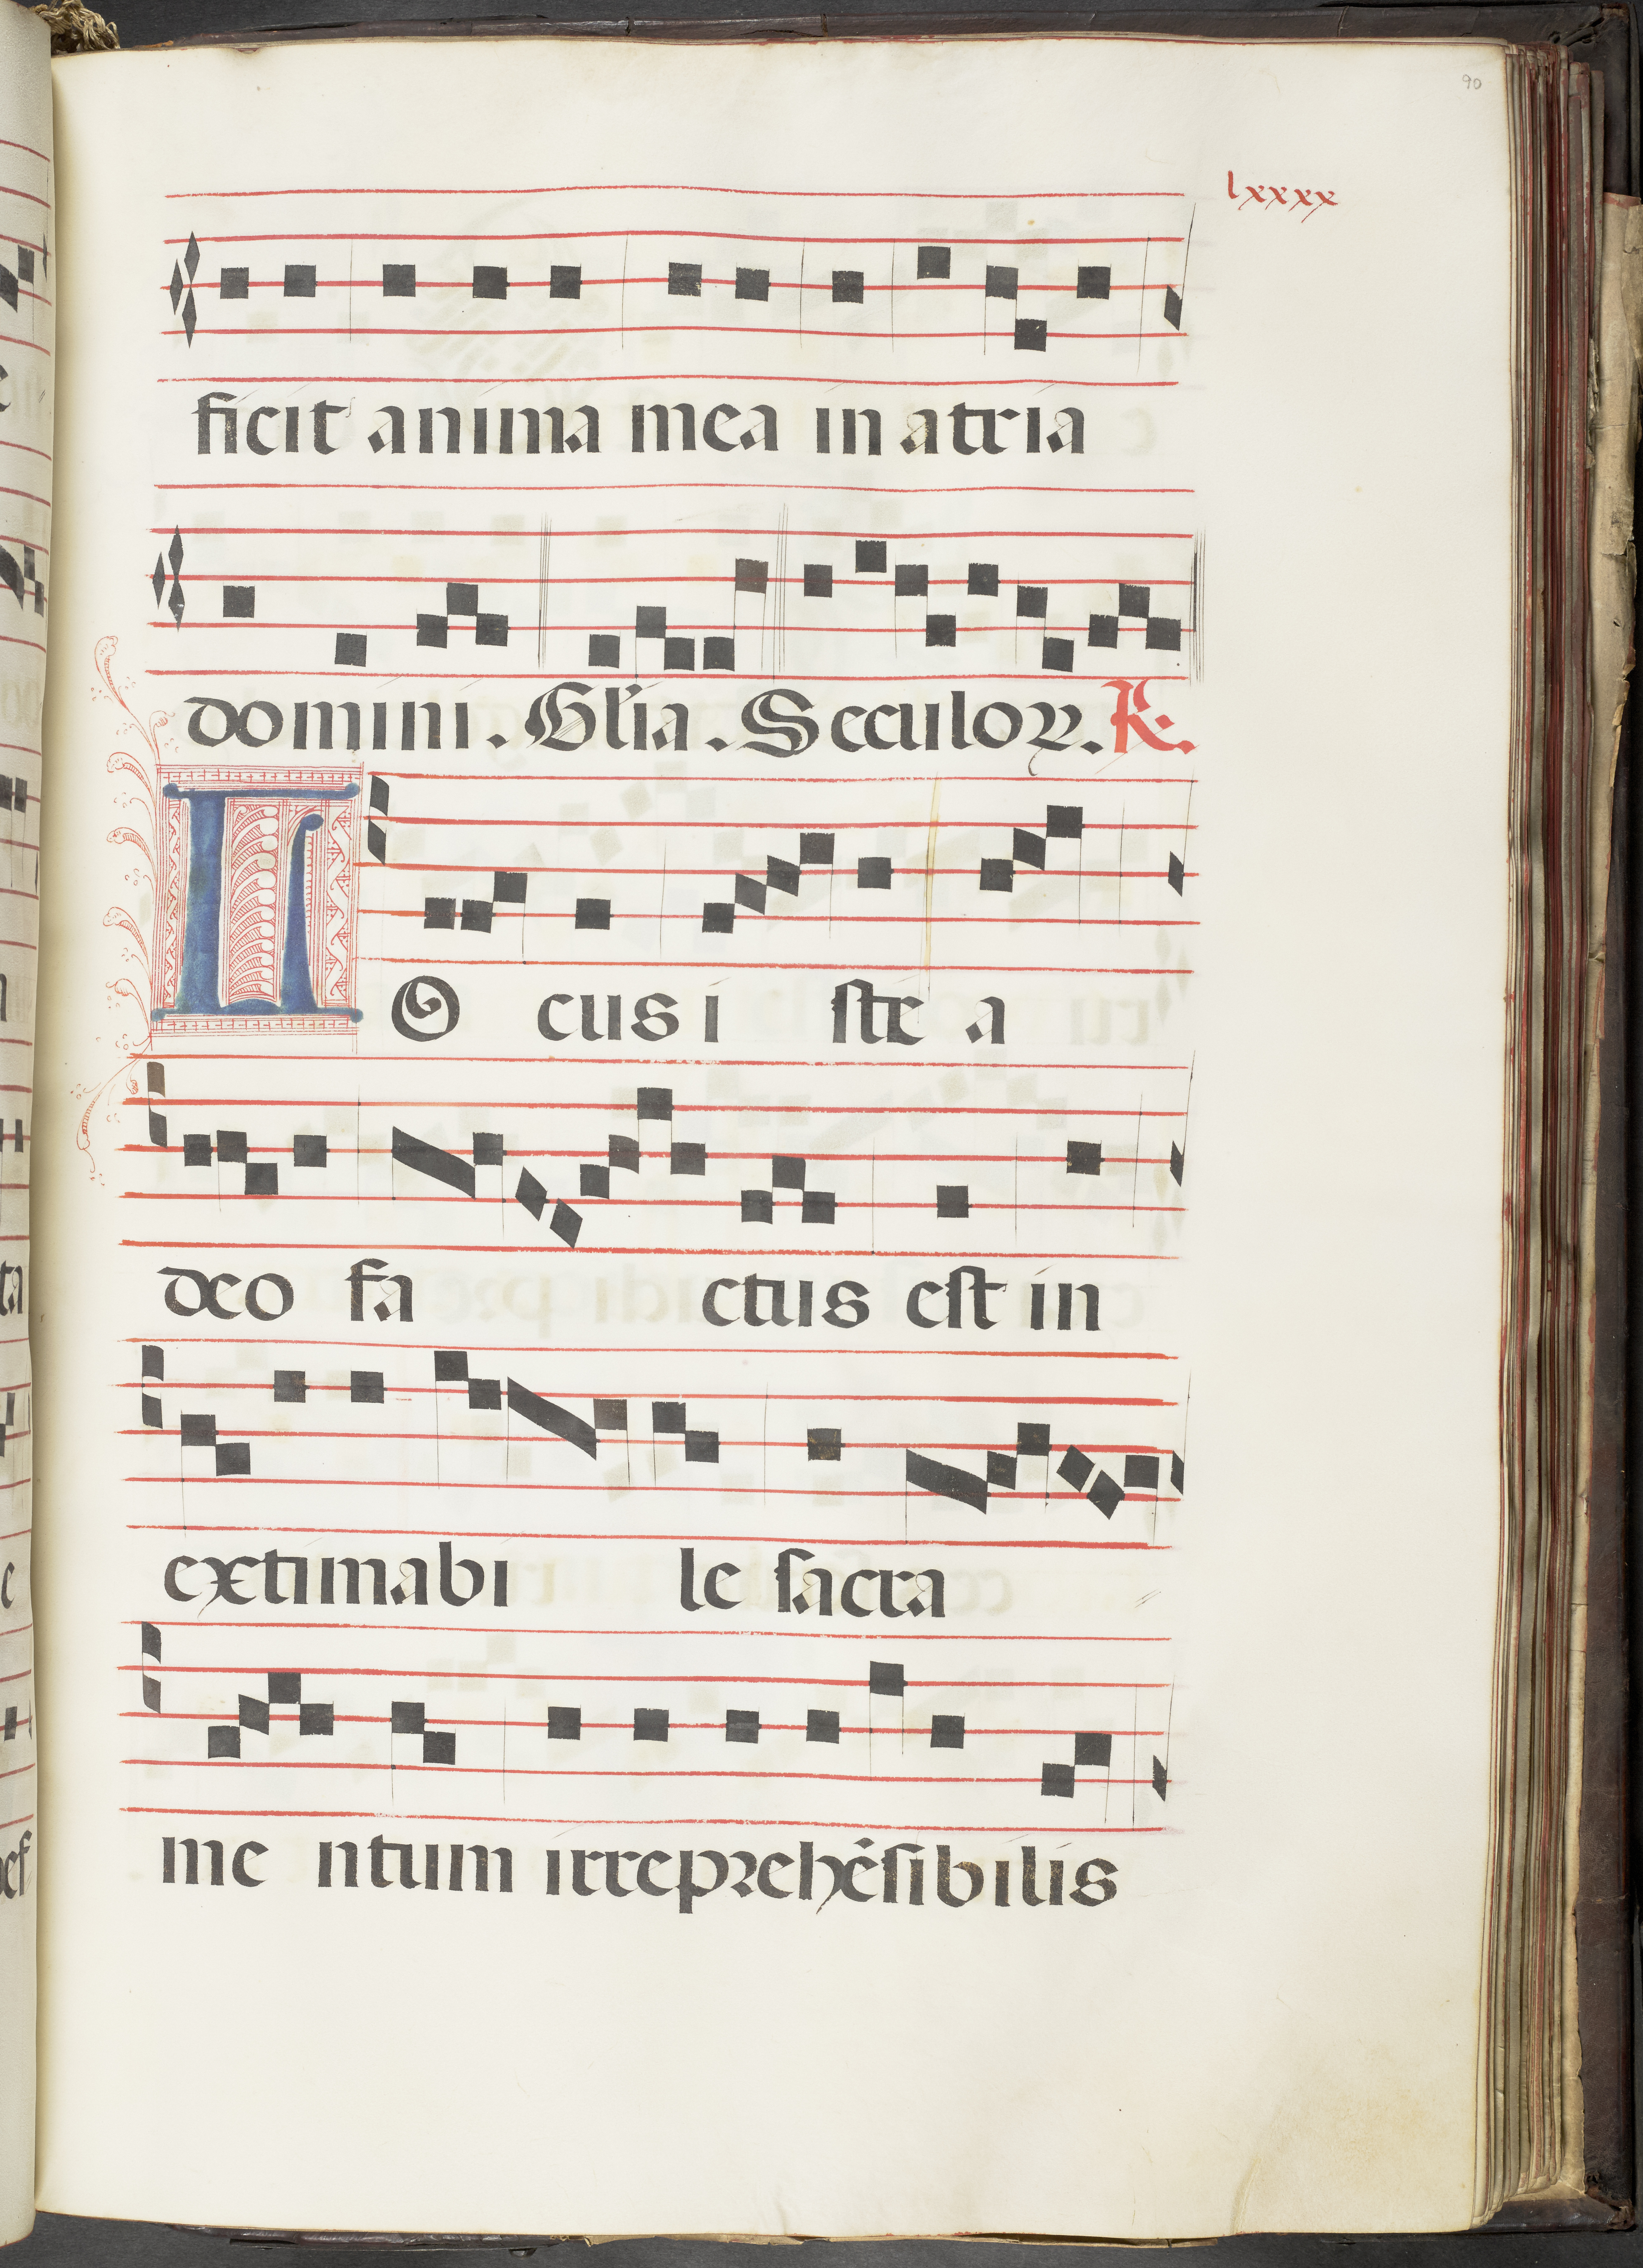 90
lxxxx
ficit anima mea in atria
domini. Glia. Seculoꝝ. R.
LOcus iste a
deo factus est in
extimabile sacra
mentum irreprehēsibilis